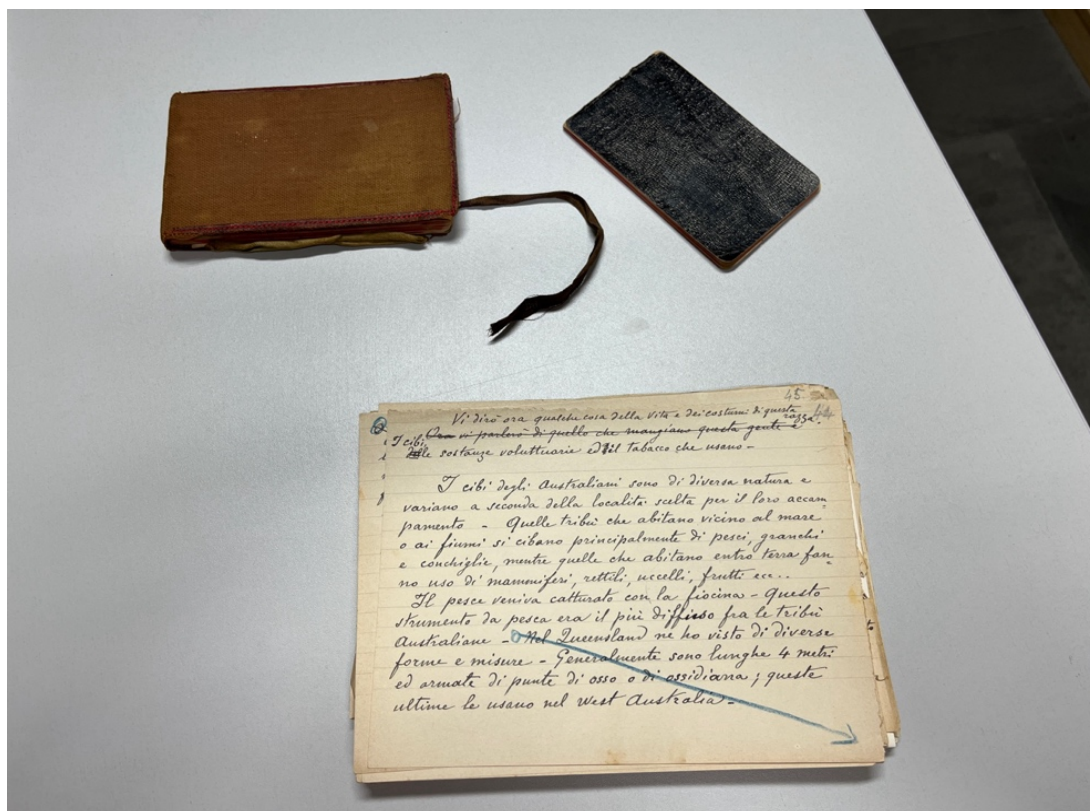 45
44
Vi dirò ora qualche cosa della vita e dei costumi di questa
razza.
Ora vi parlerò di quello che mangiano questa gente e
I cibi, le sostanze voluttuarie ed il tabacco che usano –
I cibi degli Australiani sono di diversa natura e
variano a seconda della località scelta per il loro accam
pamento – Quelle tribù che abitano vicino al mare
o ai fiumi si cibano principalmente di pesci, granchi
e conchiglie, mentre quelle che abitano entro terra fan-
no uso di mammiferi, rettili, uccelli, frutti ecc..
Il pesce veniva catturato con la fiocina – Questo
strumento da pesca era il più diffuso fra le tribù
Australiane – Nel Queensland ne ho visto di diverse
forme e misure – Generalmente sono lunghe 4 metri
ed armate di punte di osso o di ossidiana; queste
ultime le usano nel West Australia –